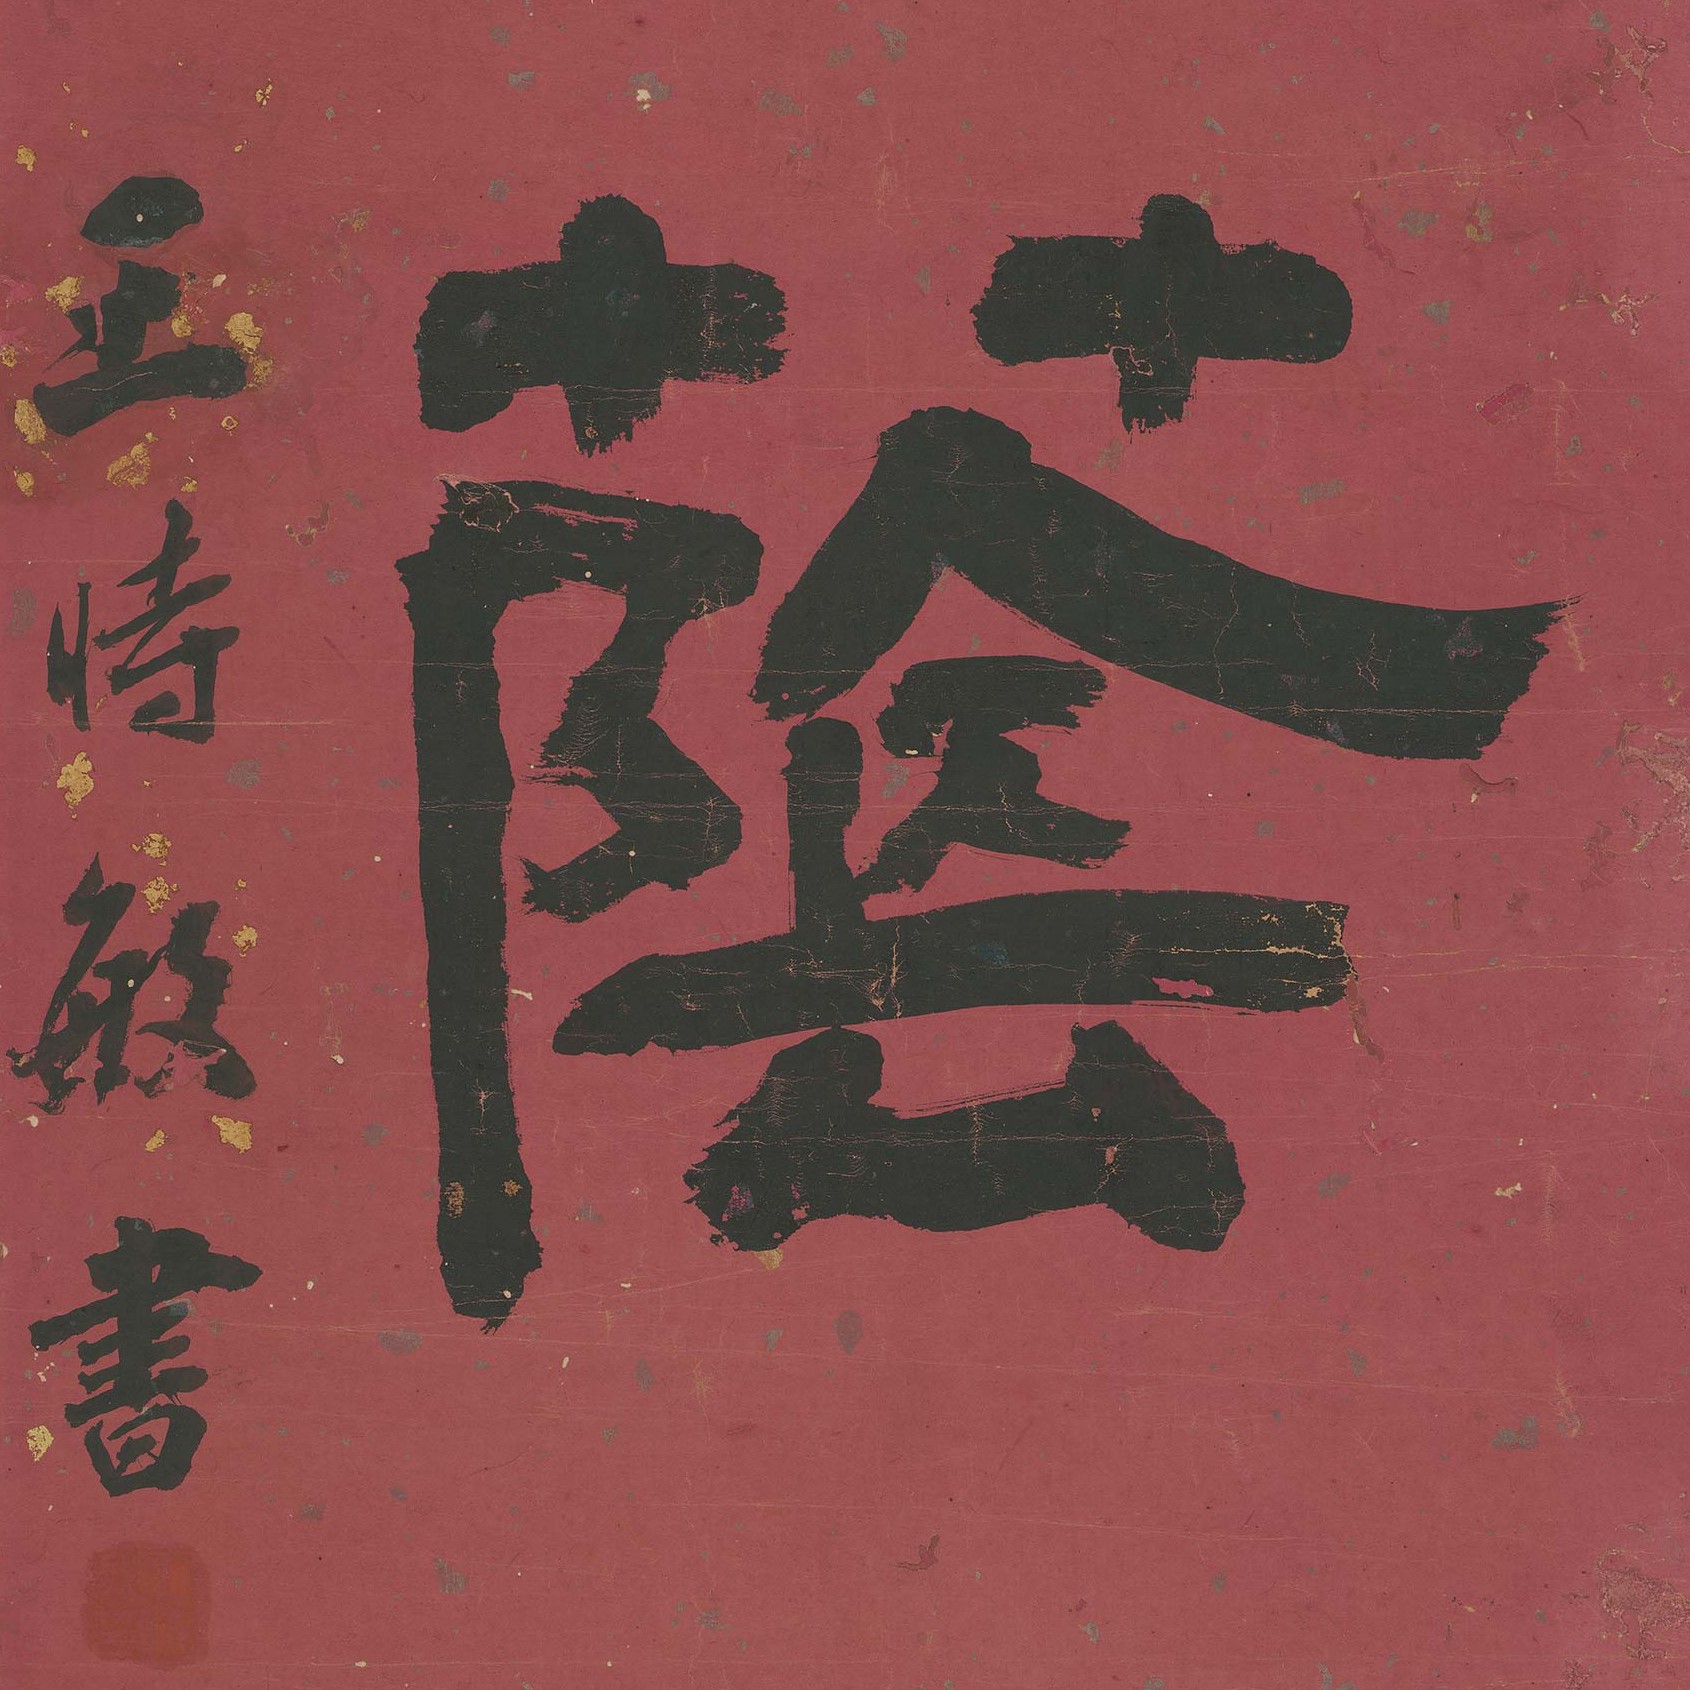 蔭
王時敏書